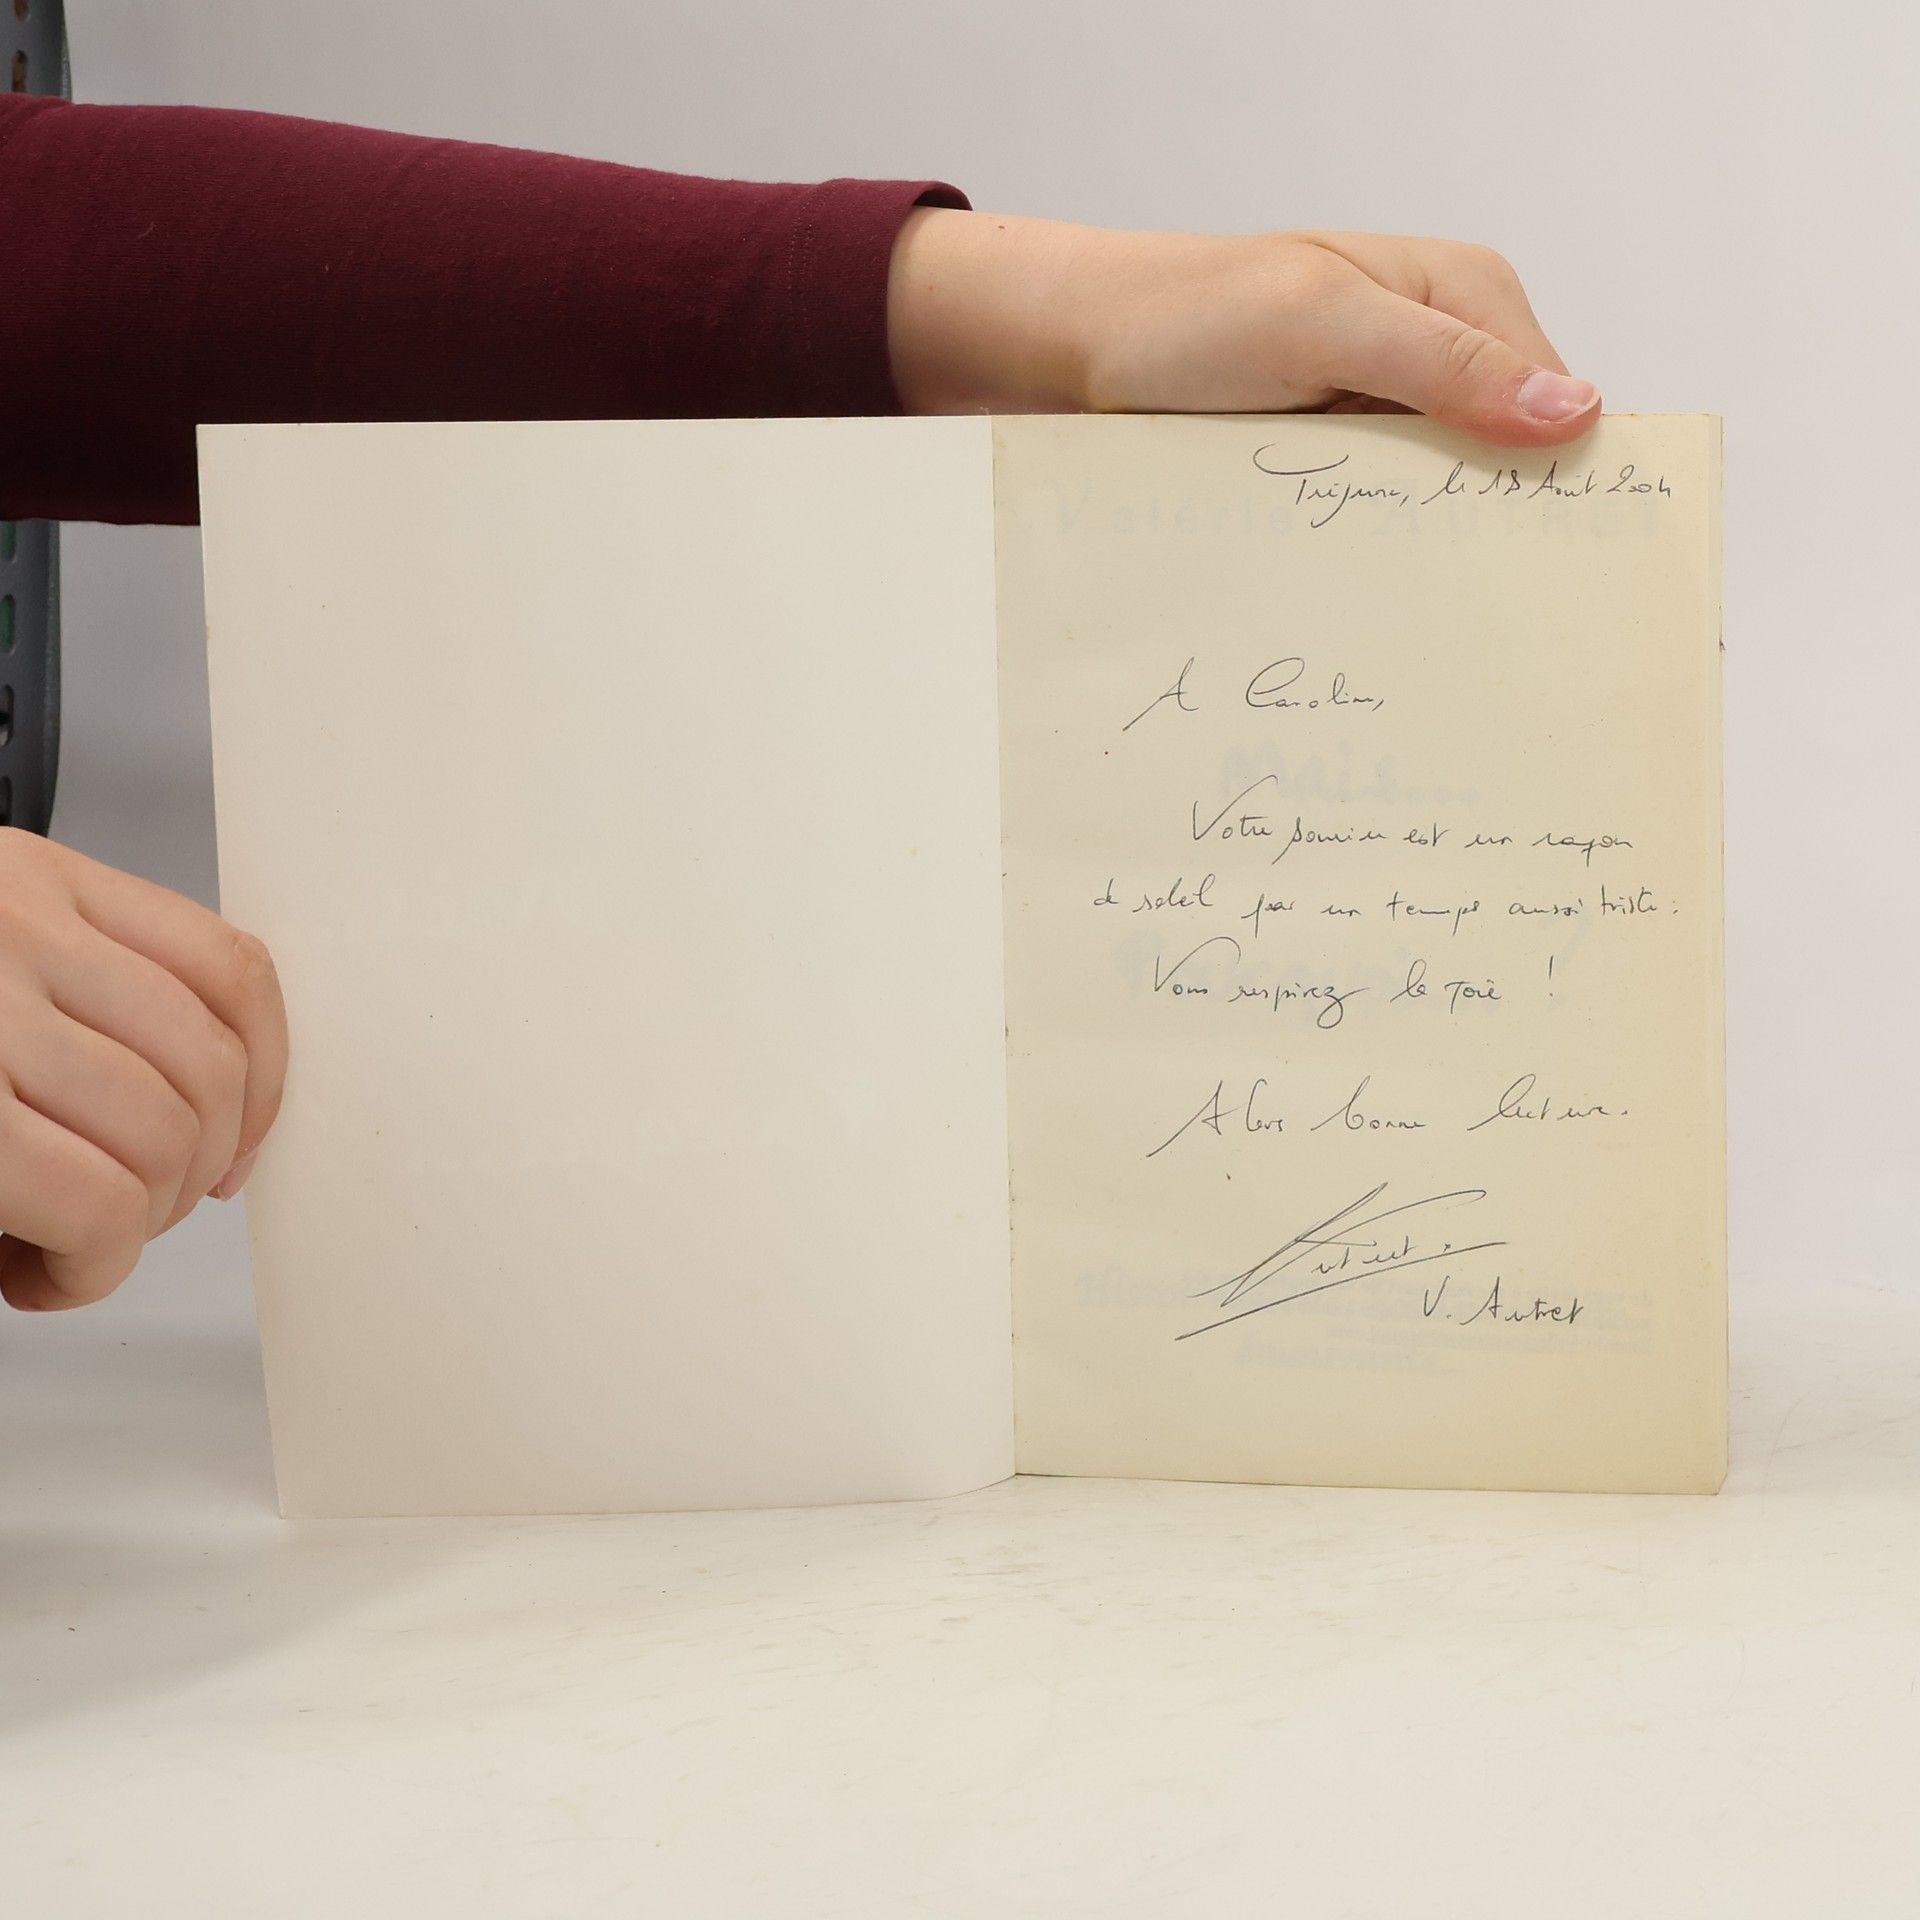 Tréjunc, le 18 Août 2004
A Caroline,
Votre sourire est un rayon
de soleil par un temps aussi triste.
Vous respirez la Joie !
Alors bonne lecture.
Autret.
V. Autret
Valérie AUTRET
Mais...